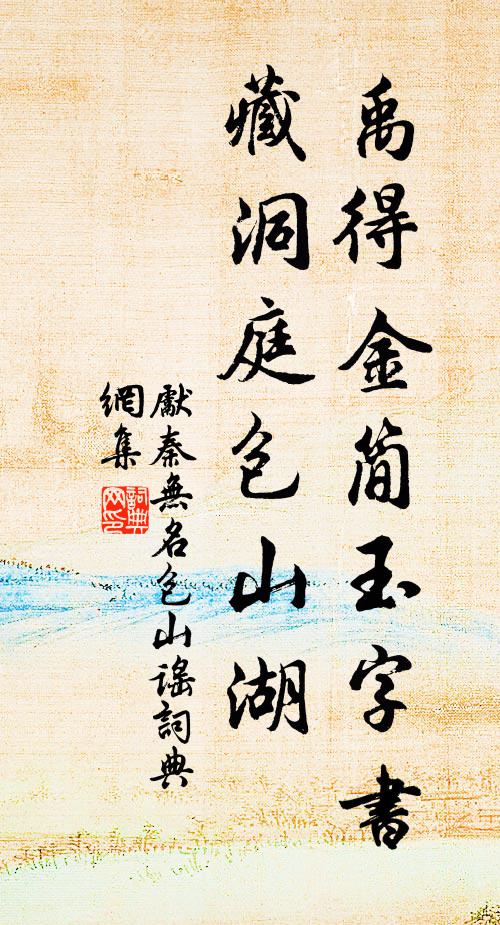 禹得金简玉字書
藏洞庭包山湖
獻秦無名包山謠詞典
網集
詞典网印